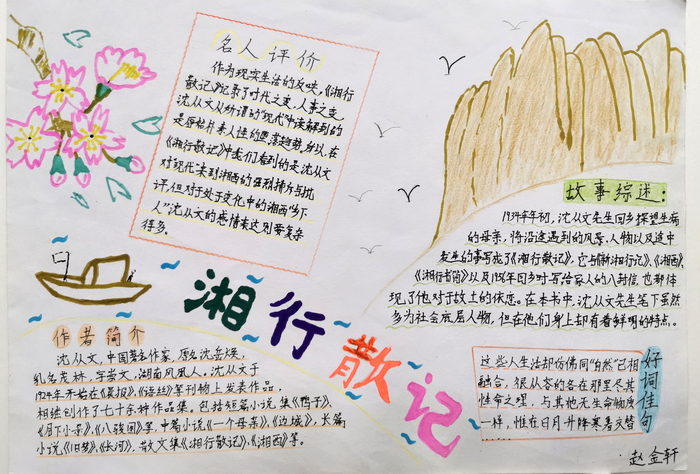 名人评价
作为现实生活的反映，《湘行
散记》记录了时代之变，人事之变，
沈从文从所谓的"现代"中读解到的
是原始朴素人性的堕落趋势，所以，在
《湘行散记》中我们看到的是沈从文
对"现代"来到湘西的强烈排斥与批
评，但对于处于变化中的湘西"乡下
人"沈从文的感情表达则要复杂
得多。
故事综述：
1934年年初，沈从文先生回乡探望生病
的母亲，将沿途遇到的风景、人物以及途中
发生的事写成了《湘行散记》，它与《新湘行记》、《湘西》、
《湘行书简》以及1956年回乡时写给家人的八封信，也都体
现了他对于故土的依恋。在本书中，沈从文先生笔下虽然
多为社会底层人物，但在他们身上却有着鲜明的特点。
湘行散记
作者简介
沈从文，中国著名作家，原名沈岳焕，
乳名茂林，字崇文，湖南凤凰人。沈从文于
1924年开始在《晨报》、《语丝》等刊物上发表作品，
相继创作了七十余种作品集。包括短篇小说集《鸭子》、
《月下小景》、《八骏图》等，中篇小说《一个母亲》、《边城》，长篇
小说《旧梦》、《长河》，散文集《湘行散记》、《湘西》等。
好词佳句
这些人生活却仿佛同"自然"已相
融合，很从容的各在那里尽其
性命之理，与其他无生命物质
一样，惟在日月升降寒暑交替
……
赵金轩